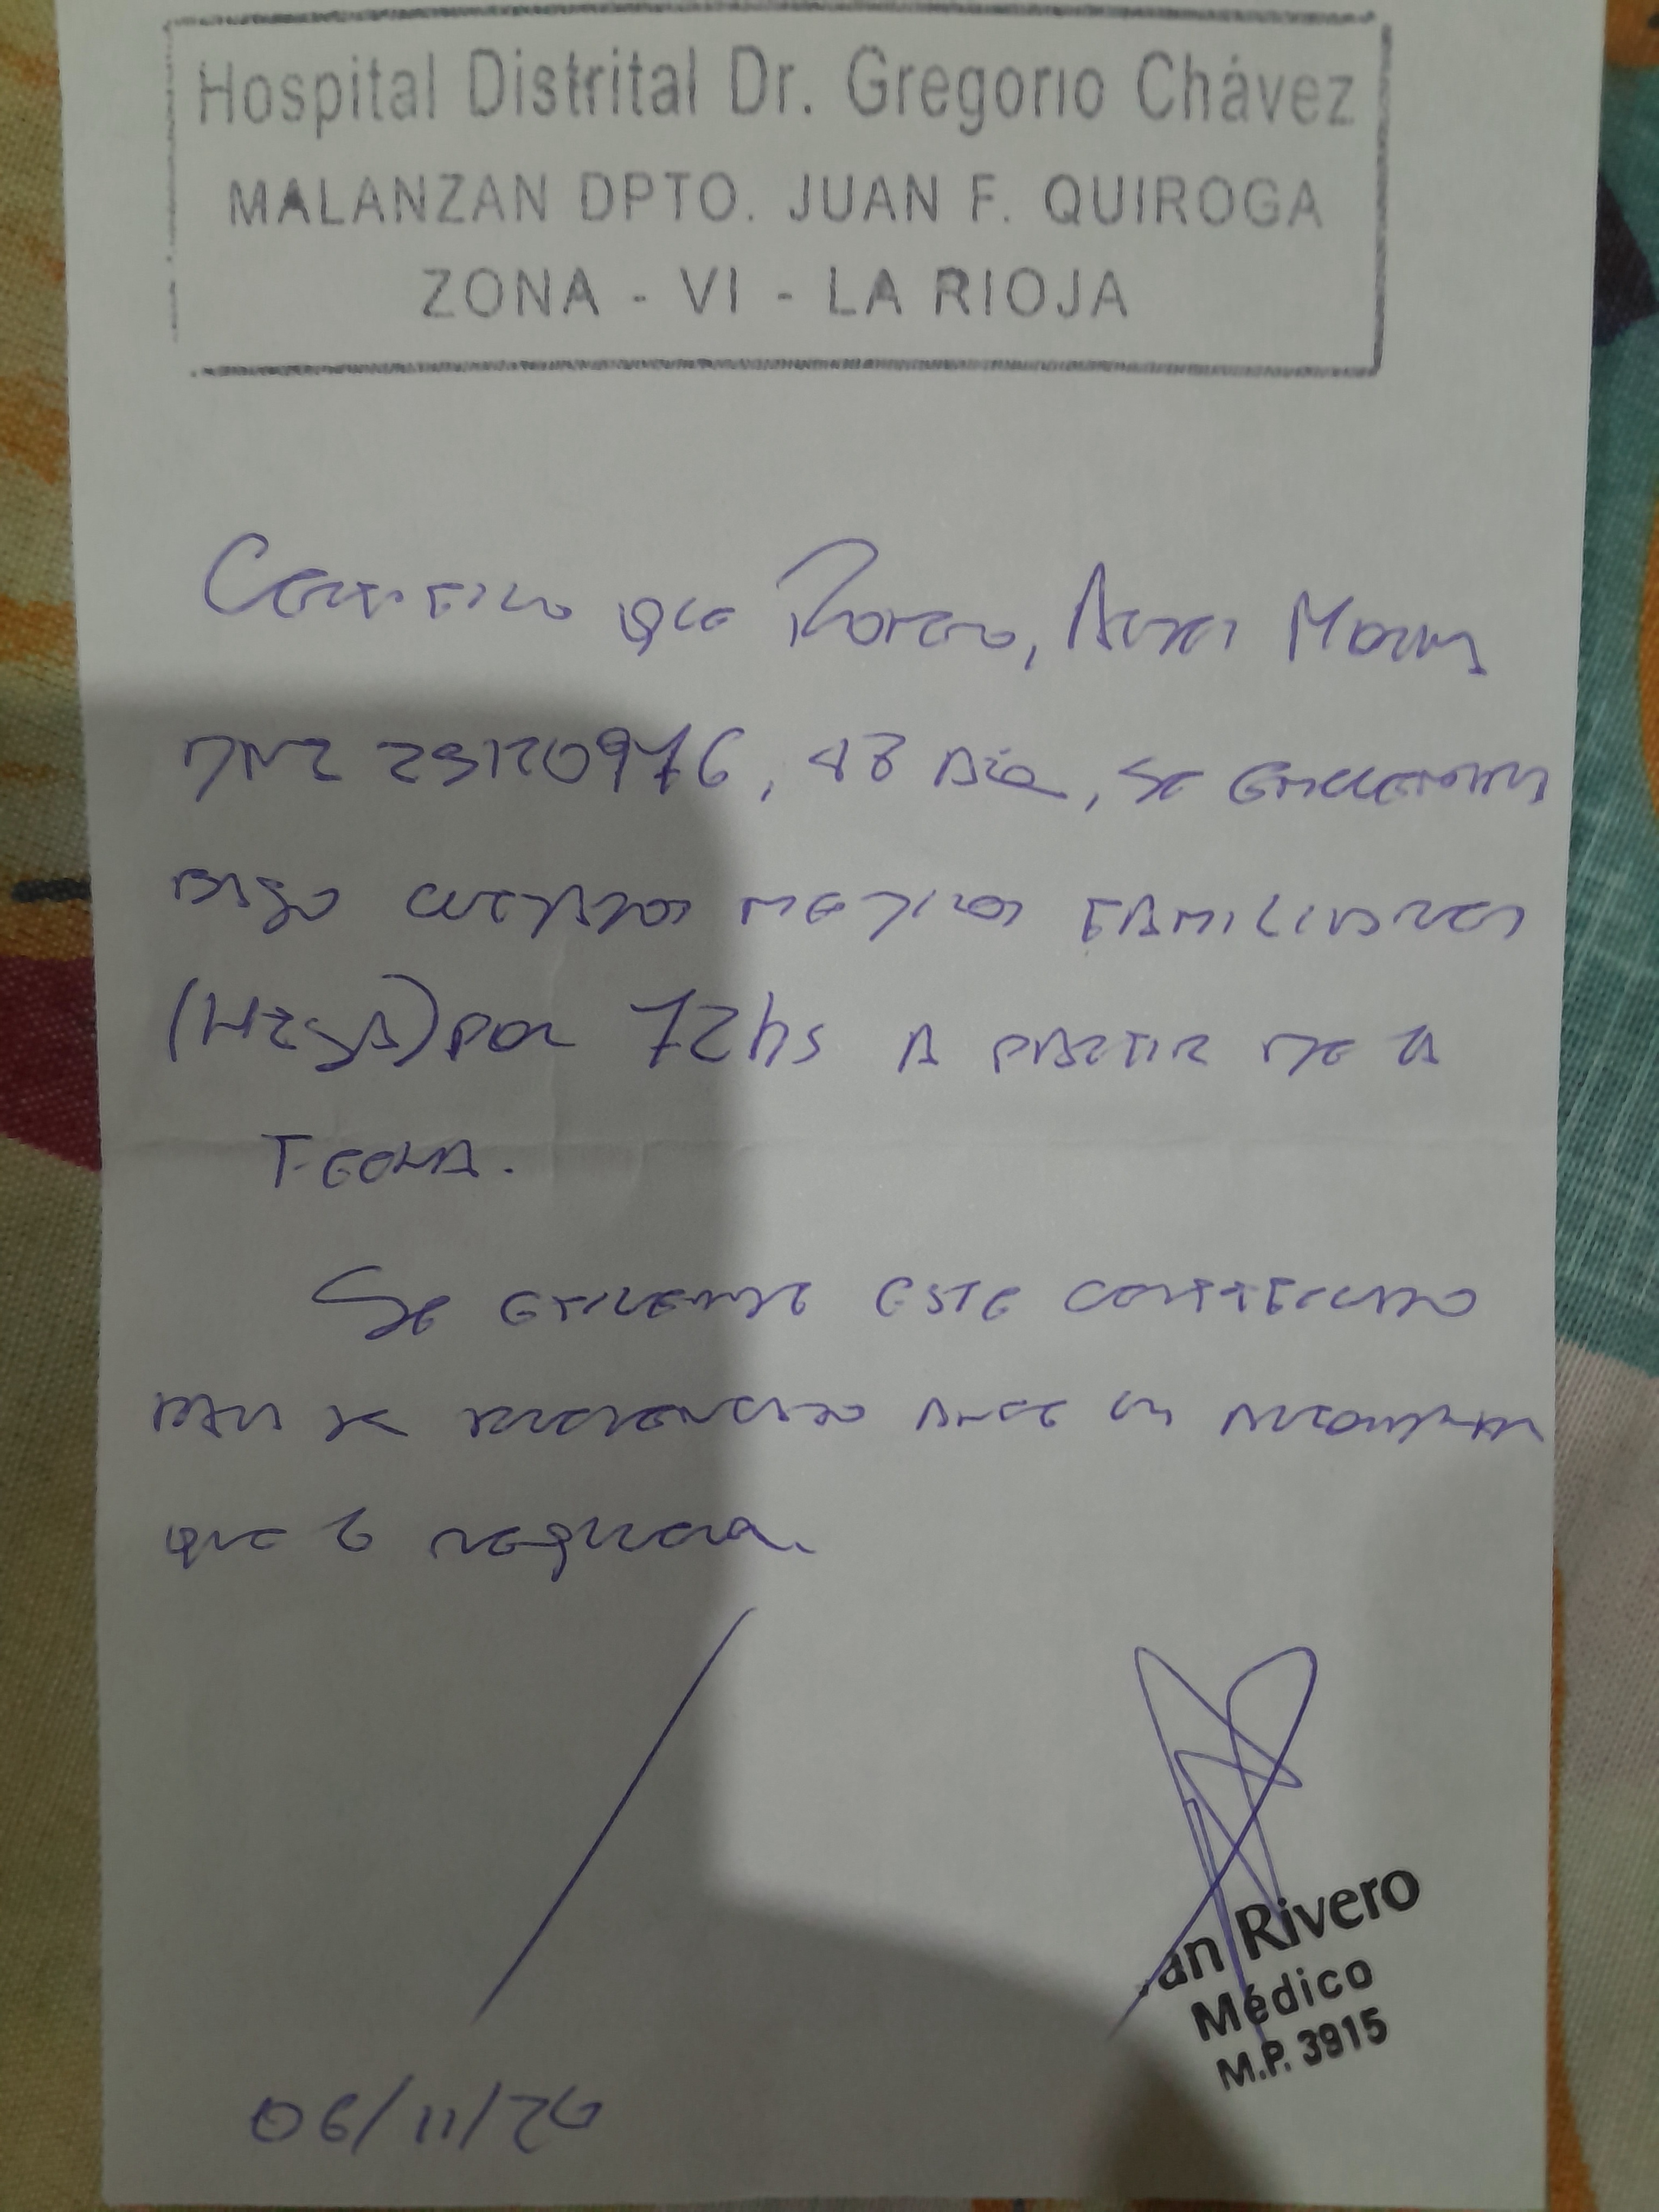 Hospital Distrital Dr. Gregorio Chávez
MALANZAN DPTO. JUAN F. QUIROGA
ZONA - VI - LA RIOJA
Certifico que
DNI 29120976, 48 años, se encuentra
bajo cuidados medicos familiares
(Hija) por 72hs a partir de la
fecha.
Se extiende este certificado
para ser presentado ante la autoridad
que lo requiera.
Rivero
Médico
M.P. 3915
06/11/26